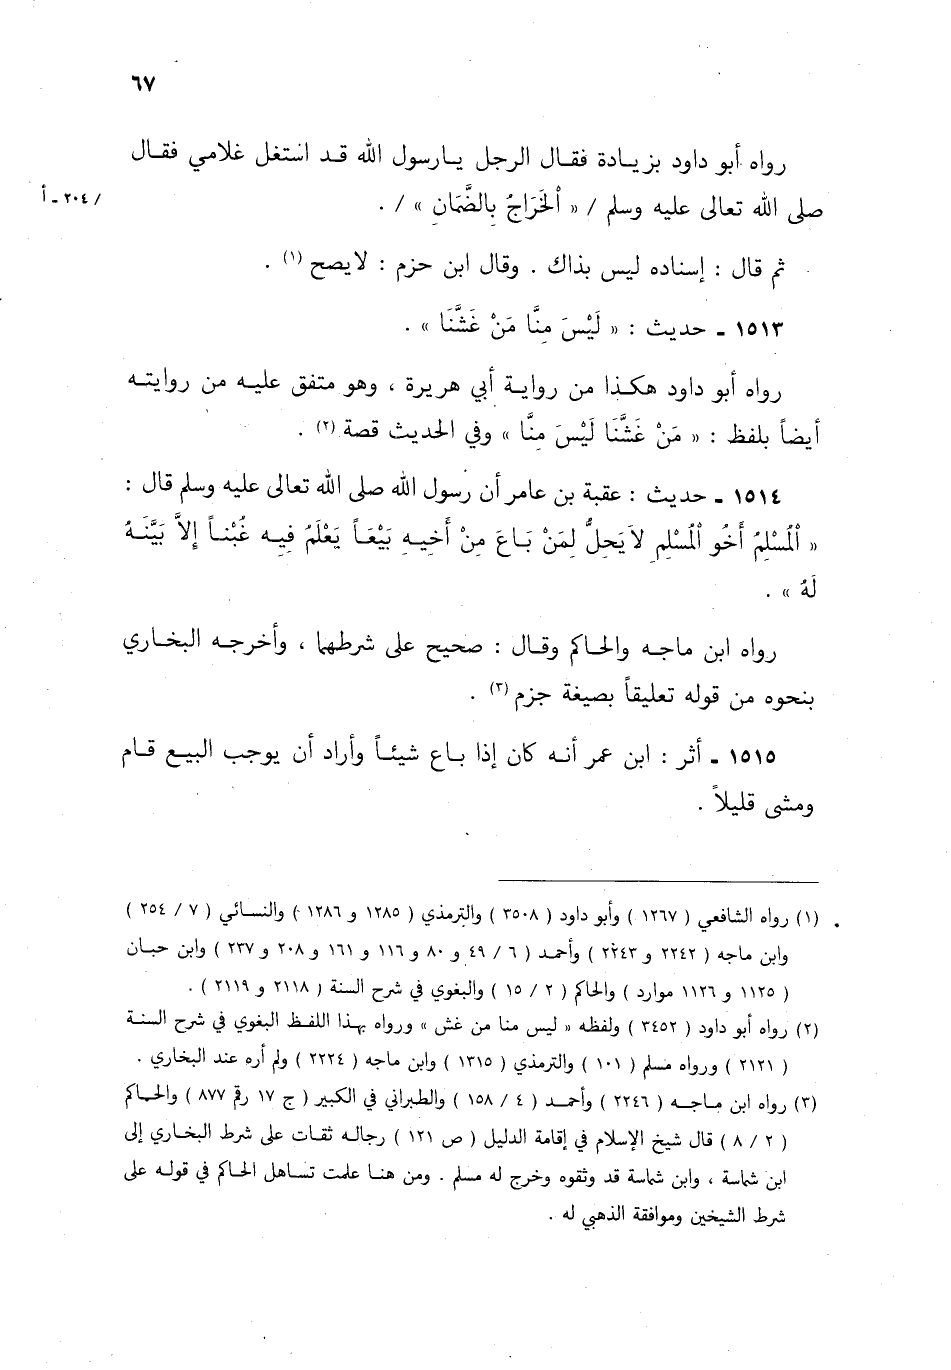 ٦٧
رواه أبو داود بزيادة فقال الرجل يارسول الله قد استغل غلامي فقال
صلى الله تعالى عليه وسلم / « اَلْخَرَاجُ بِالضَّمَانِ » / .
/ ٢٠٤ ـ أ
ثم قال : إسناده ليس بذاك . وقال ابن حزم : لايصح (١) .
١٥١٣ ـ حديث : « لَيْسَ مِنَّا مَنْ غَشَّنَا » .
رواه أبو داود هكذا من رواية أبي هريرة ، وهو متفق عليه من روايته
أيضاً بلفظ : « مَنْ غَشَّنَا لَيْسَ مِنَّا » وفي الحديث قصة (٢) .
١٥١٤ ـ حديث : عقبة بن عامر أن رسول الله صلى الله تعالى عليه وسلم قال :
« اَلْمُسْلِمُ أَخُو اَلْمُسْلِمِ لاَيَحِلُّ لِمَنْ بَاعَ مِنْ أَخِيهِ بَيْعَاً يَعْلَمُ فِيهِ عُبْناً إِلاَّ بَيَّنَهُ
لَهُ » .
رواه ابن ماجه والحاكم وقال : صحيح على شرطهما ، وأخرجه البخاري
بنحوه من قوله تعليقاً بصيغة جزم (٣) .
١٥١٥ ـ أثر : ابن عمر أنه كان إذا باع شيئاً وأراد أن يوجب البيع قام
ومشى قليلاً .
(١) رواه الشافعي ( ١٢٦٧ ) وأبو داود ( ٣٥٠٨ ) والترمذي ( ١٢٨٥ و ١٢٨٦ ) والنسائي ( ٧ / ٢٥٤ )
وابن ماجه ( ٢٢٤٢ و ٢٢٤٣ ) وأحمد ( ٦ / ٤٩ و ٨٠ و ١١٦ و ١٦١ و ٢٠٨ و ٢٣٧ ) وابن حبان
( ١١٢٥ و ١١٢٦ موارد ) والحاكم ( ٢ / ١٥ ) والبغوي في شرح السنة ( ٢١١٨ و ٢١١٩ ) .
(٢) رواه أبو داود ( ٣٤٥٢ ) ولفظه « ليس منا من غش » ورواه بهذا اللفظ البغوي في شرح السنة
( ٢١٢١ ) ورواه مسلم ( ١٠١ ) والترمذي ( ١٣١٥ ) وابن ماجه ( ٢٢٢٤ ) ولم أره عند البخاري .
(٣) رواه ابن ماجه ( ٢٢٤٦ ) وأحمد ( ٤ / ١٥٨ ) والطبراني في الكبير ( ج ١٧ رقم ٨٧٧ ) والحاكم
( ٢ / ٨ ) قال شيخ الإسلام في إقامة الدليل ( ص ١٢١ ) رجاله ثقات على شرط البخاري إلى
ابن شماسة ، وابن شماسة قد وثقوه وخرج له مسلم . ومن هنا علمت تساهل الحاكم في قوله على
شرط الشيخين وموافقة الذهبي له .